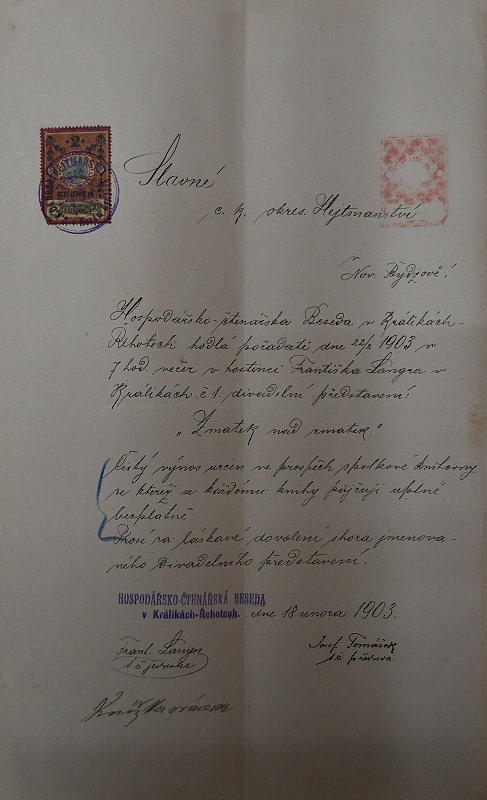 Slavné
c. k. okres. Hejtmanství
Nov. Bydžově!
Hospodářsko-čtenářska Beseda v Králikách-
Řehotech hodlá pořádati dne 22/2 1903 v
7 hod. večer v hostinci Františka Langra v
Králikách č 1. divadelní představení:
"Zmatek nad zmatek."
Čistý výnos určen ve prospěch spolkové knihovny
ze kteréž se každému knihy půjčují uplně
bezplatně.
Prosí za láskavé dovolení shora jmenova-
ného Divadelního představení.
HOSPODÁŘSKO-ČTENÁŘSKÁ BESEDA
v Králíkách-Řehotech. dne 18 února 1903.
Frant. Langr
t č jednatel
Josef Tomášek
t. č předseda
2
KRONEN